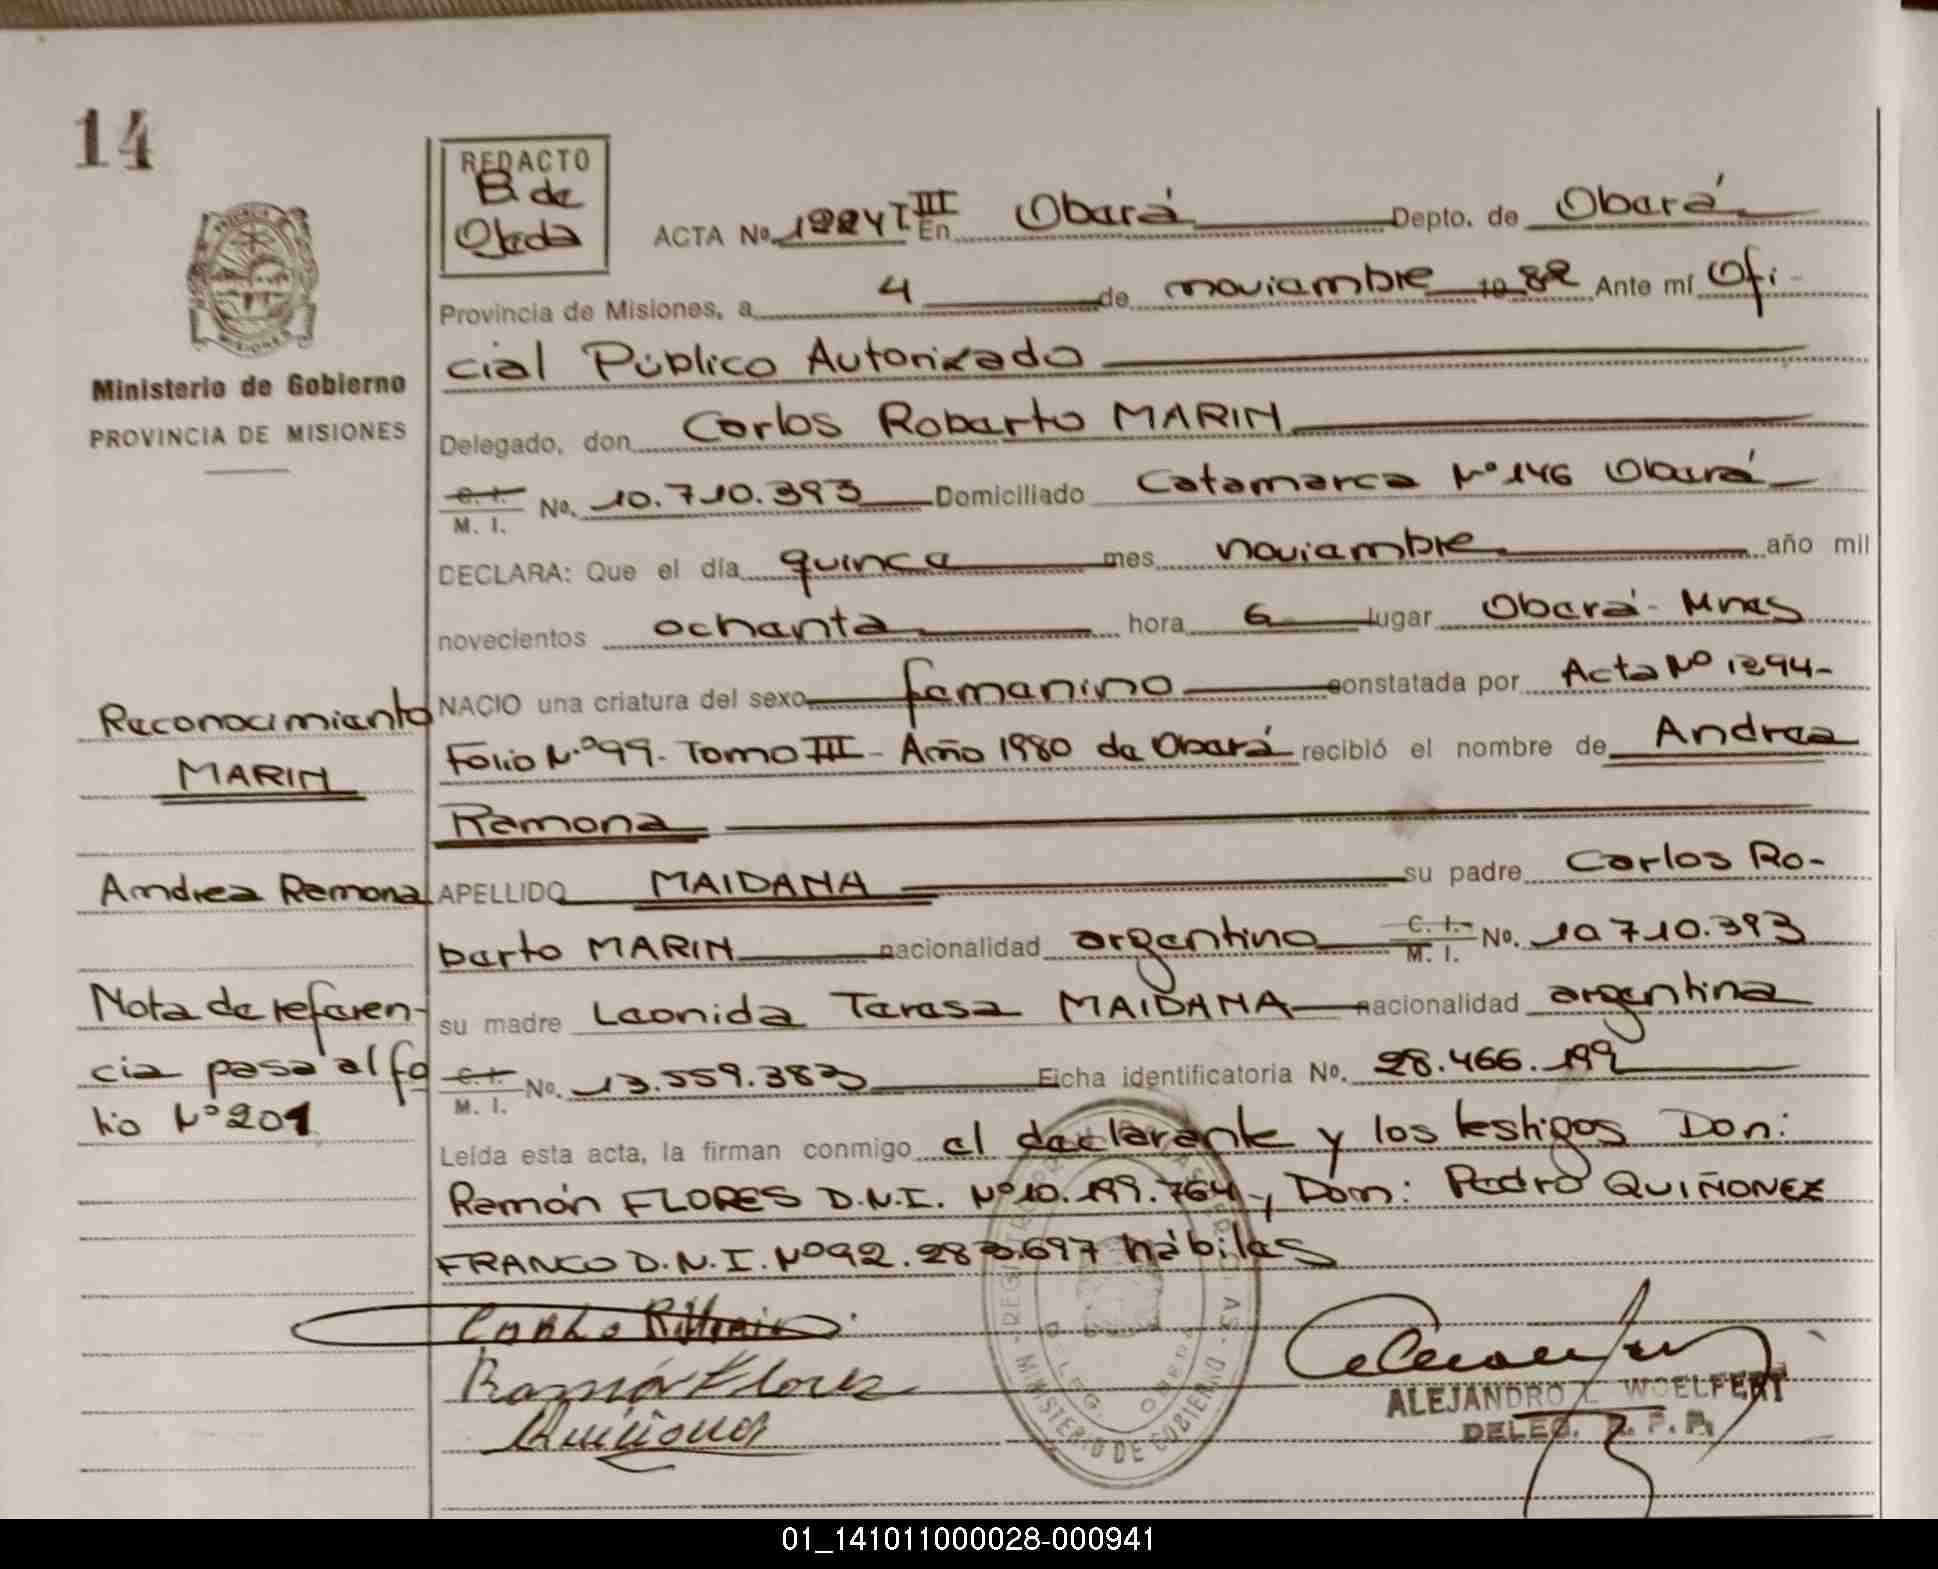 14
REDACTO
E. de
Ojeda
ACTA Nº 1224 T III En Oberá Depto. de Oberá
Provincia de Misiones, a 4 de noviembre 1982 Ante mí Ofi-
cial Público Autorizado
Ministerio de Gobierno
PROVINCIA DE MISIONES
Delegado, don Carlos Roberto MARIN
C. I. M. I. Nº. 10.710.393 Domiciliado Catamarca Nº 146 Oberá
DECLARA: Que el día quince mes noviembre año mil
novecientos ochenta hora 6 lugar Oberá - Mnes
NACIO una criatura del sexo femenino constatada por Acta Nº 1294-
Folio Nº 99. Tomo III - Año 1980 de Oberá recibió el nombre de Andrea
Ramona
APELLIDO MAIDANA su padre Carlos Ro-
berto MARIN nacionalidad argentino C. I. M. I. Nº. 10.710.393
su madre Leonida Teresa MAIDANA nacionalidad argentina
C. I. M. I. Nº. 13.559.383 Ficha identificatoria Nº. 28.466.199
Leída esta acta, la firman conmigo el declarante y los testigos Don:
Ramón FLORES D.N.I. Nº 10.199.764, Don: Pedro QUIÑONEZ
FRANCO D.N.I. Nº 92.283.697 hábiles
Reconocimiento
MARIN
Andrea Ramona
Nota de referen-
cia pasa al fo
lio Nº 201
Ramón Flores
Quiñonez
REGISTRO PROVINCIAL DE LAS PERSONAS
DELEG. OBERA
MINISTERIO DE GOBIERNO
ALEJANDRO L. WOELFERT
DELEG. R. P. P.
01_141011000028-000941